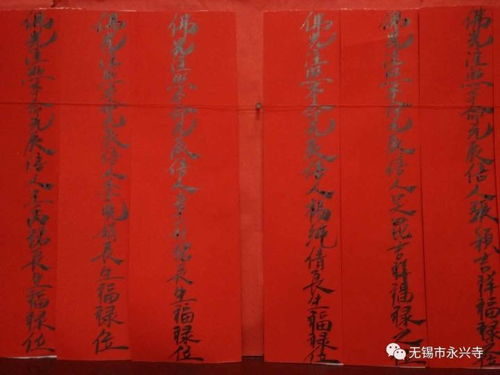 佛光注照本命元辰信人張穎吉祥福祿位
佛光注照本命元辰信人吴昆吉祥福祿之位
佛光注照本命元辰信人楊純倩長生福祿位
佛光注照本命元辰信人長生福祿位
佛光注照本命元辰信人長生福祿位
佛光注照本命元辰信人王長生福祿位
无锡市永兴寺